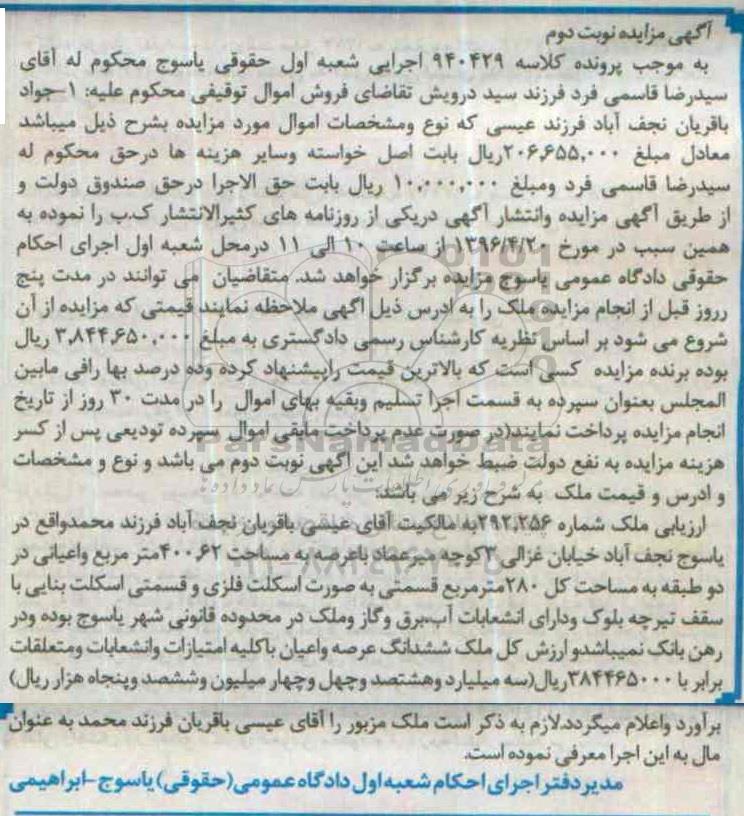 آگهی مزایده نوبت دوم
به موجب پرونده کلاسه ۹۴۰۴۲۹ اجرایی شعبه اول حقوقی یاسوج محکوم له آقای
سیدرضا قاسمی فرد فرزند سید درویش تقاضای فروش اموال توقیفی محکوم علیه: ۱-جواد
باقریان نجف آباد فرزند عیسی که نوع ومشخصات اموال مورد مزایده بشرح ذیل میباشد
معادل مبلغ ۲۰۶,۶۵۵,۰۰۰ریال بابت اصل خواسته وسایر هزینه ها درحق محکوم له
سیدرضا قاسمی فرد ومبلغ ۱۰,۰۰۰,۰۰۰ ریال بابت حق الاجرا درحق صندوق دولت و
از طریق آگهی مزایده وانتشار آگهی دریکی از روزنامه های کثیرالانتشار ک.ب را نموده به
همین سبب در مورخ ۱۳۹۶/۴/۲۰ از ساعت ۱۰ الی ۱۱ درمحل شعبه اول اجرای احکام
حقوقی دادگاه عمومی یاسوج مزایده برگزار خواهد شد. متقاضیان می توانند در مدت پنج
رروز قبل از انجام مزایده ملک را به ادرس ذیل اگهی ملاحظه نمایند قیمتی که مزایده از آن
شروع می شود بر اساس نظریه کارشناس رسمی دادگستری به مبلغ ۳,۸۴۴,۶۵۰,۰۰۰ ریال
بوده برنده مزایده کسی است که بالاترین قیمت راپیشنهاد کرده وده درصد بها رافی مابین
المجلس بعنوان سپرده به قسمت اجرا تسلیم وبقیه بهای اموال را در مدت ۳۰ روز از تاریخ
انجام مزایده پرداخت نمایند(در صورت عدم پرداخت مابقی اموال سپرده تودیعی پس از کسر
هزینه مزایده به نفع دولت ضبط خواهد شد این آگهی نوبت دوم می باشد و نوع و مشخصات
و ادرس و قیمت ملک به شرح زیر می باشد:
ارزیابی ملک شماره ۲۹۲,۲۵۶به مالکیت آقای عیسی باقریان نجف آباد فرزند محمدواقع در
یاسوج نجف آباد خیابان غزالی ۳کوچه میرعماد باعرصه به مساحت ۴۰۰,۶۲متر مربع واعیانی در
دو طبقه به مساحت کل ۲۸۰مترمربع قسمتی به صورت اسکلت فلزی و قسمتی اسکلت بنایی با
سقف تیرچه بلوک ودارای انشعابات آب،برق وگاز وملک در محدوده قانونی شهر یاسوج بوده ودر
رهن بانک نمیباشدو ارزش کل ملک ششدانگ عرصه واعیان باکلیه امتیازات وانشعابات ومتعلقات
برابر با ۳۸۴۴۶۵۰۰۰ریال(سه میلیارد وهشتصد وچهل وچهار میلیون وششصد وپنجاه هزار ریال)
برآورد واعلام میگردد.لازم به ذکر است ملک مزبور را آقای عیسی باقریان فرزند محمد به عنوان
مال به این اجرا معرفی نموده است.
مدیر دفتر اجرای احکام شعبه اول دادگاه عمومی(حقوقی) یاسوج-ابراهیمی
ParsNamadData